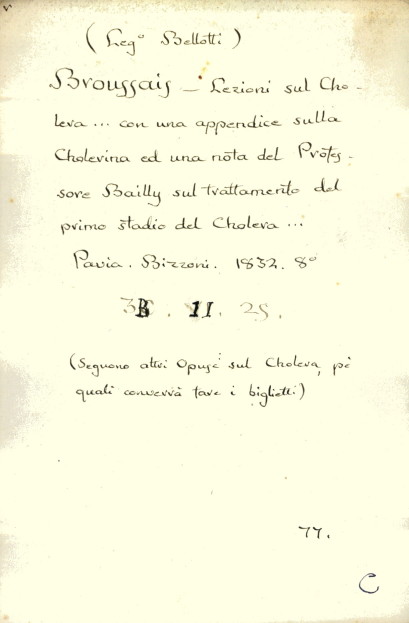 ( Leg.º Bellotti )
Broussais – Lezioni sul Cho-
lera ... con una appendice sulla
Cholerina ed una nota del Profes-
sore Bailly sul trattamento del
primo stadio del Cholera ...
Pavia. Bizzoni. 1832. 8º
B. 11. 25.
(Seguono altri Opusc. sul Cholera, pei
quali converrà fare i biglietti)
77.
C